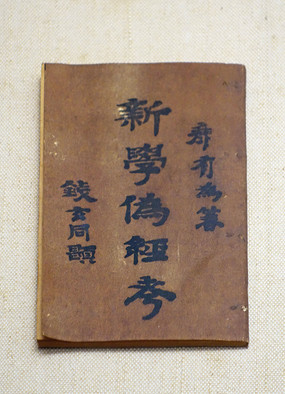 康有為纂
新學偽經考
錢玄同題